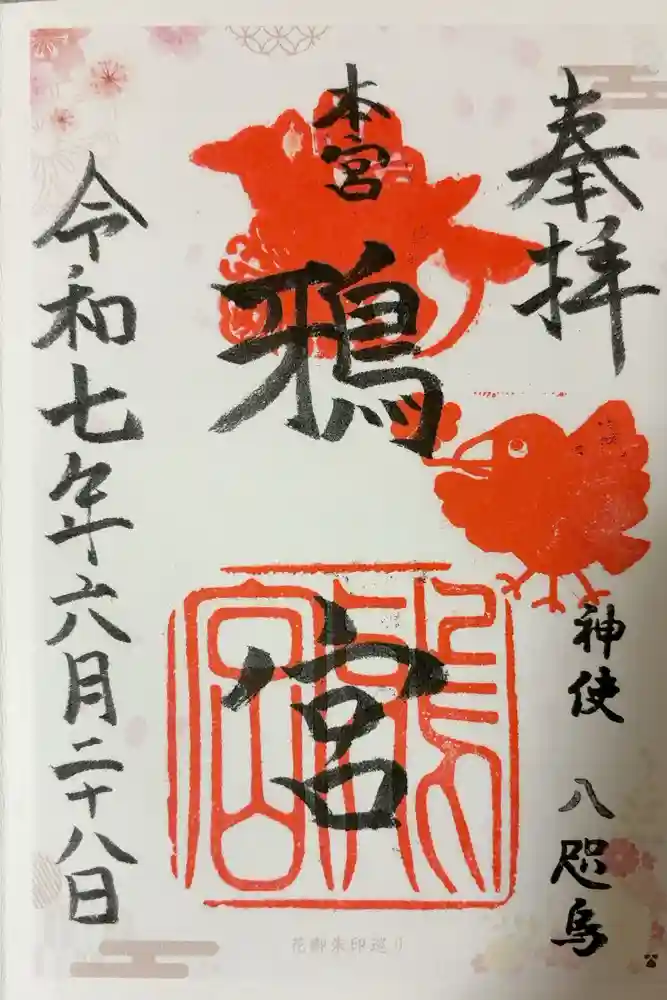 奉拝
神使 八咫烏
本宮
鴉
宮
令和七年六月二十八日
花御朱印巡り